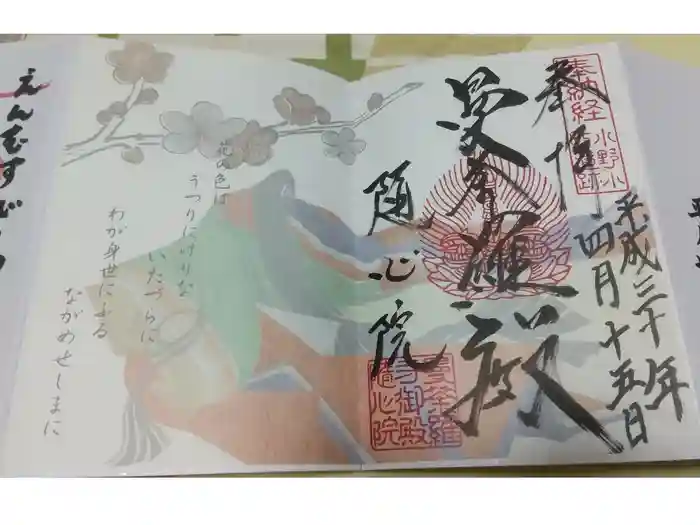 奉拝
平成三十年
四月十五日
奉納経
小野小
町
跡
曼荼羅殿
随心院
曼荼羅
寺御殿
随心院
花の色は
うつりにけりな
いたづらに
わが身世にふる
ながめせしまに
えんむすび